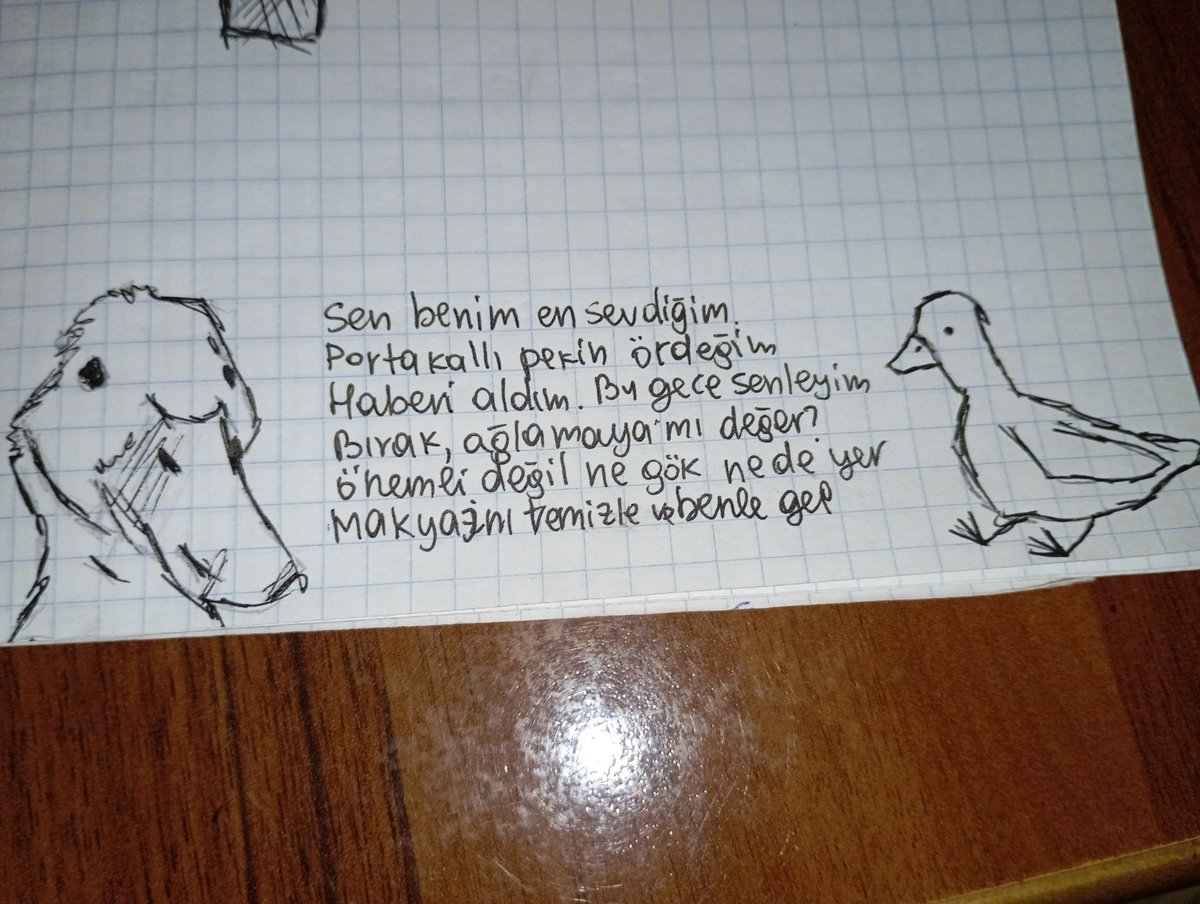 Sen benim en sevdiğim.
Portakallı pekin ördeğim
Haberi aldım. Bu gece senleyim
Bırak, ağlamaya mı değer?
önemli değil ne gök nede yer
Makyajını temizle ve benle gel